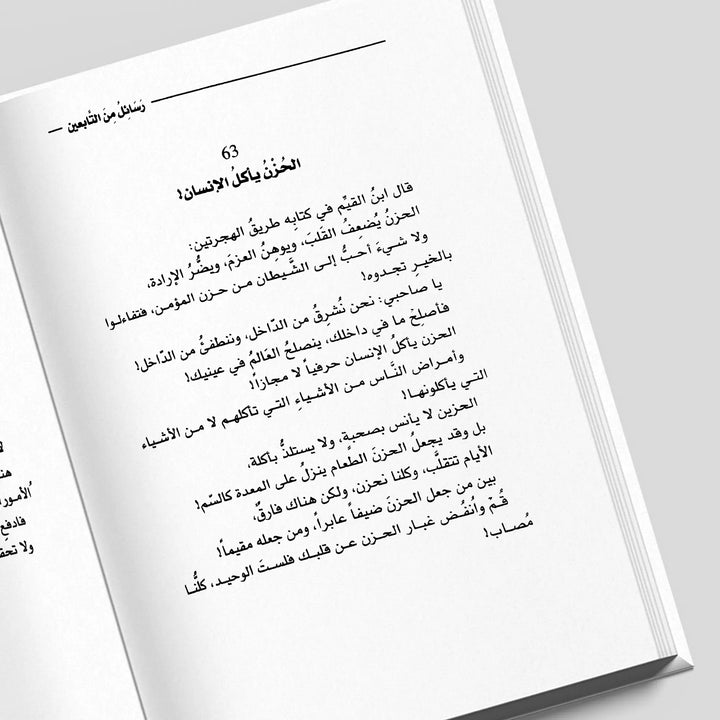 رَسَائِلُ مِنَ التَّابعين
63
الحُزْنُ يأكلُ الإنسان!
قال ابنُ القيِّم في كتابِه طريقُ الهجرتين:
الحزنُ يُضعِفُ القَلبَ، ويوهِنُ العزمَ، ويضُرُّ الإرادة،
ولا شيءَ أحبُّ إلى الشَّيطان من حزن المؤمن، فتفاءلوا
بالخيرِ تجدوه!
يا صاحبي: نحن نُشرِقُ من الدّاخل، وننطفئُ من الدّاخل!
فأصلِحْ ما في داخلك، ينصلحُ العَالمُ في عينيك!
الحزن يأكلُ الإنسان حرفياً لا مجازاً!
وأمراض النَّاس من الأشياءِ التي تأكلهم لا من الأشياء
التي يأكلونها!
الحزين لا يأنس بصحبة، ولا يستلذُّ بأكلة،
بل وقد يجعلُ الحزنَ الطّعام ينزلُ على المعدة كالسّم!
الأيام تتقلَّب، وكلنا نحزن، ولكن هناك فارقٌ،
بين من جعل الحزنَ ضيفاً عابراً، ومن جعله مقيماً!
قُمْ وأنفُض غبار الحزن عن قلبك فلستَ الوحيد، كلُّنا
مُصاب!
هنا
الأمور
فادفع